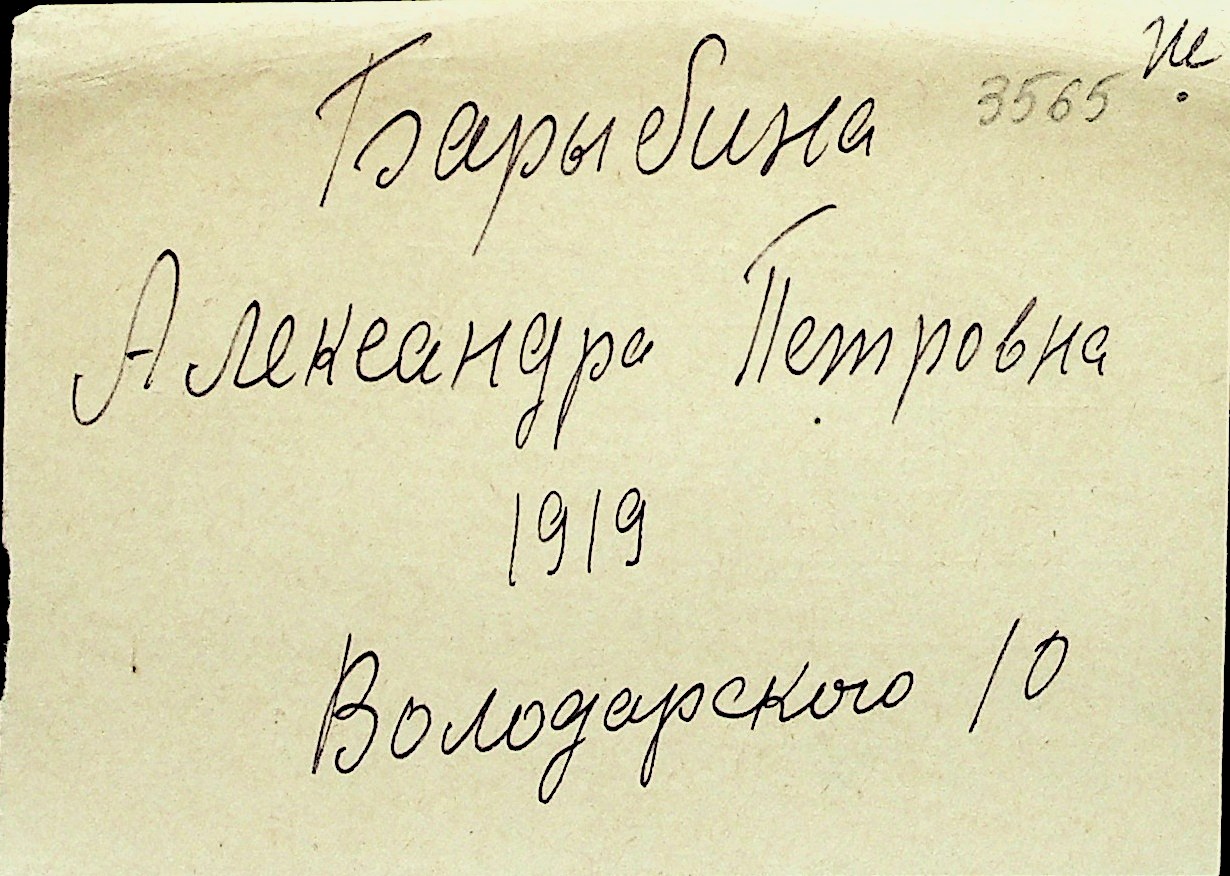 Барыбина 3565
Александра Петровна
1919
Володарского 10